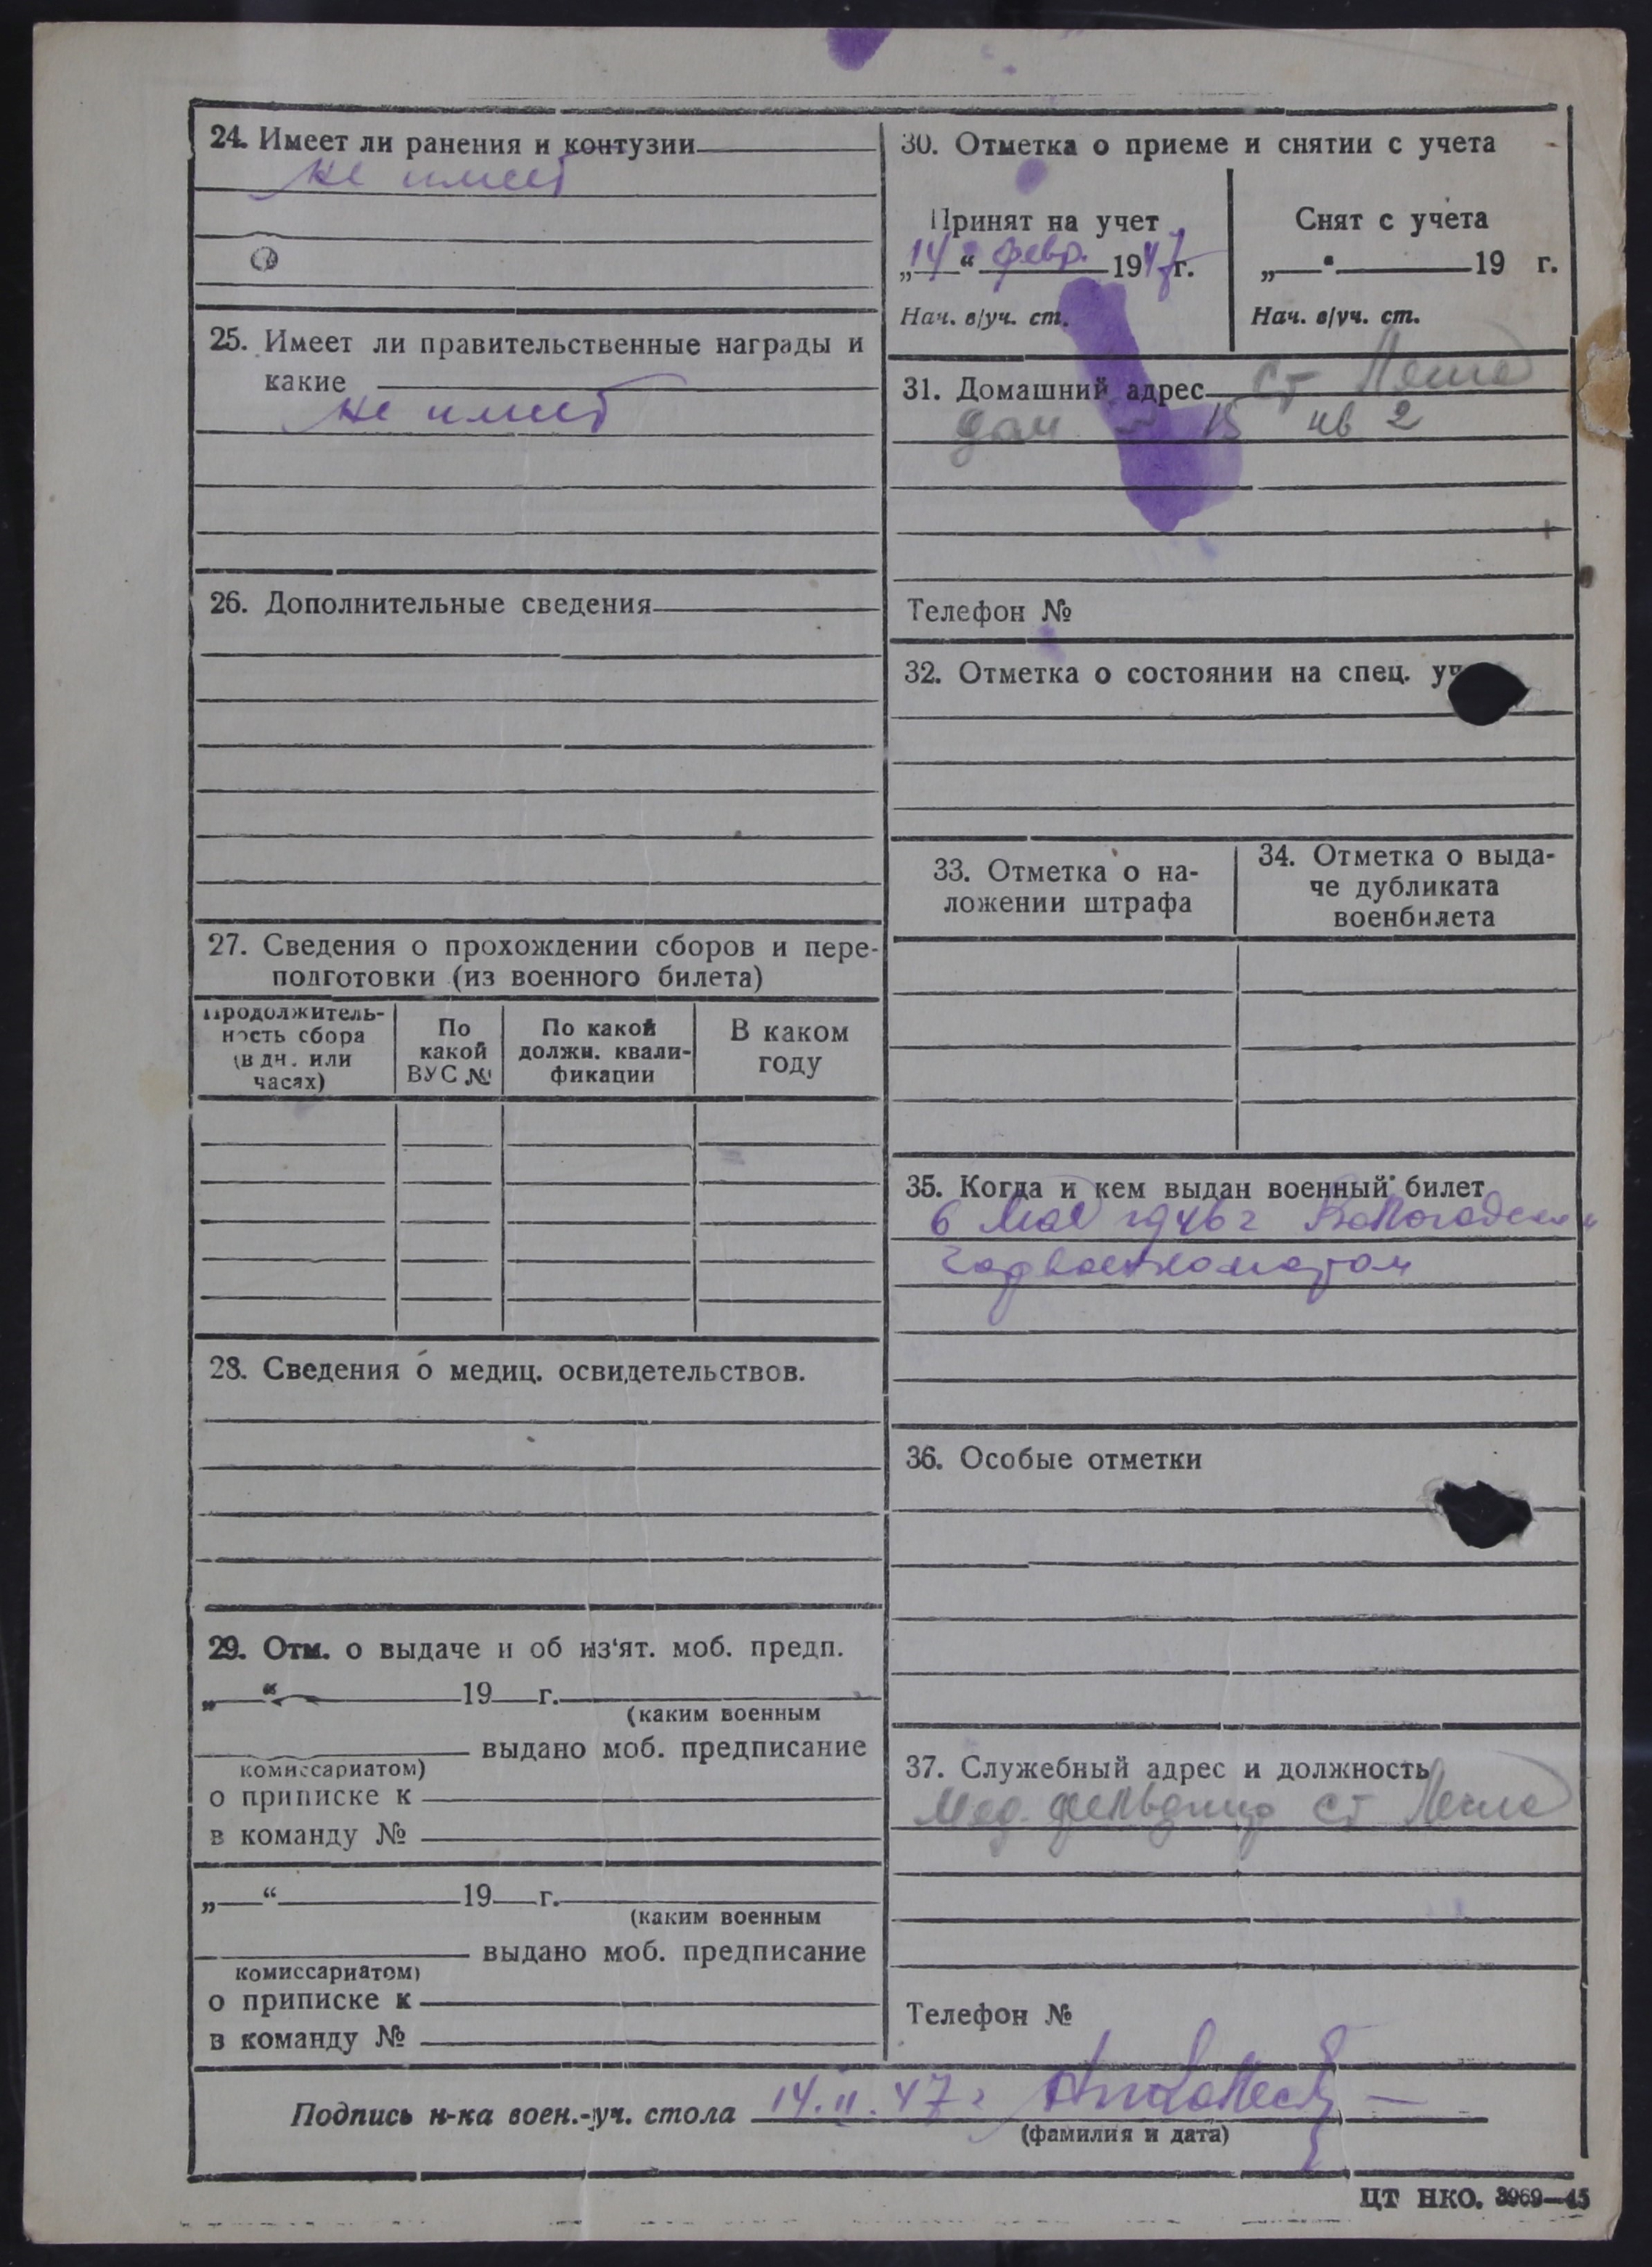 24. Имеет ли ранения и контузии
не имеет
25. Имеет ли правительственные награды и
какие
не имеет
26. Дополнительные сведения
27. Сведения о прохождении сборов и пере-
подготовки (из военного билета)
Продолжитель-
ность сбора
(в дн. или
часах)
По
какой
ВУС №
По какой
должн. квали-
фикации
В каком
году
28. Сведения о медиц. освидетельствов.
29. Отм. о выдаче и об из‘ят. моб. предп.
„ “ 19 г.
(каким военным
выдано моб. предписание
комиссариатом)
о приписке к
в команду №
„ “ 19 г.
(каким военным
выдано моб. предписание
комиссариатом)
о приписке к
в команду №
30. Отметка о приеме и снятии с учета
Принят на учет
„14“ февр. 1947г.
Нач. в/уч. ст.
Снят с учета
„ “ 19 г.
Нач. в/уч. ст.
31. Домашний адрес ст
дом 15 кв 2
Телефон №
32. Отметка о состоянии на спец.
33. Отметка о на-
ложении штрафа
34. Отметка о выда-
че дубликата
военбилета
35. Когда и кем выдан военный билет
6 мая 1946 г Вологодским
горвоенкоматом
36. Особые отметки
37. Служебный адрес и должность
Мед. фельдшер ст
Телефон №
Подпись н-ка воен.-уч. стола 14.II.47г
(фамилия и дата)
ЦТ НКО. 3969—45